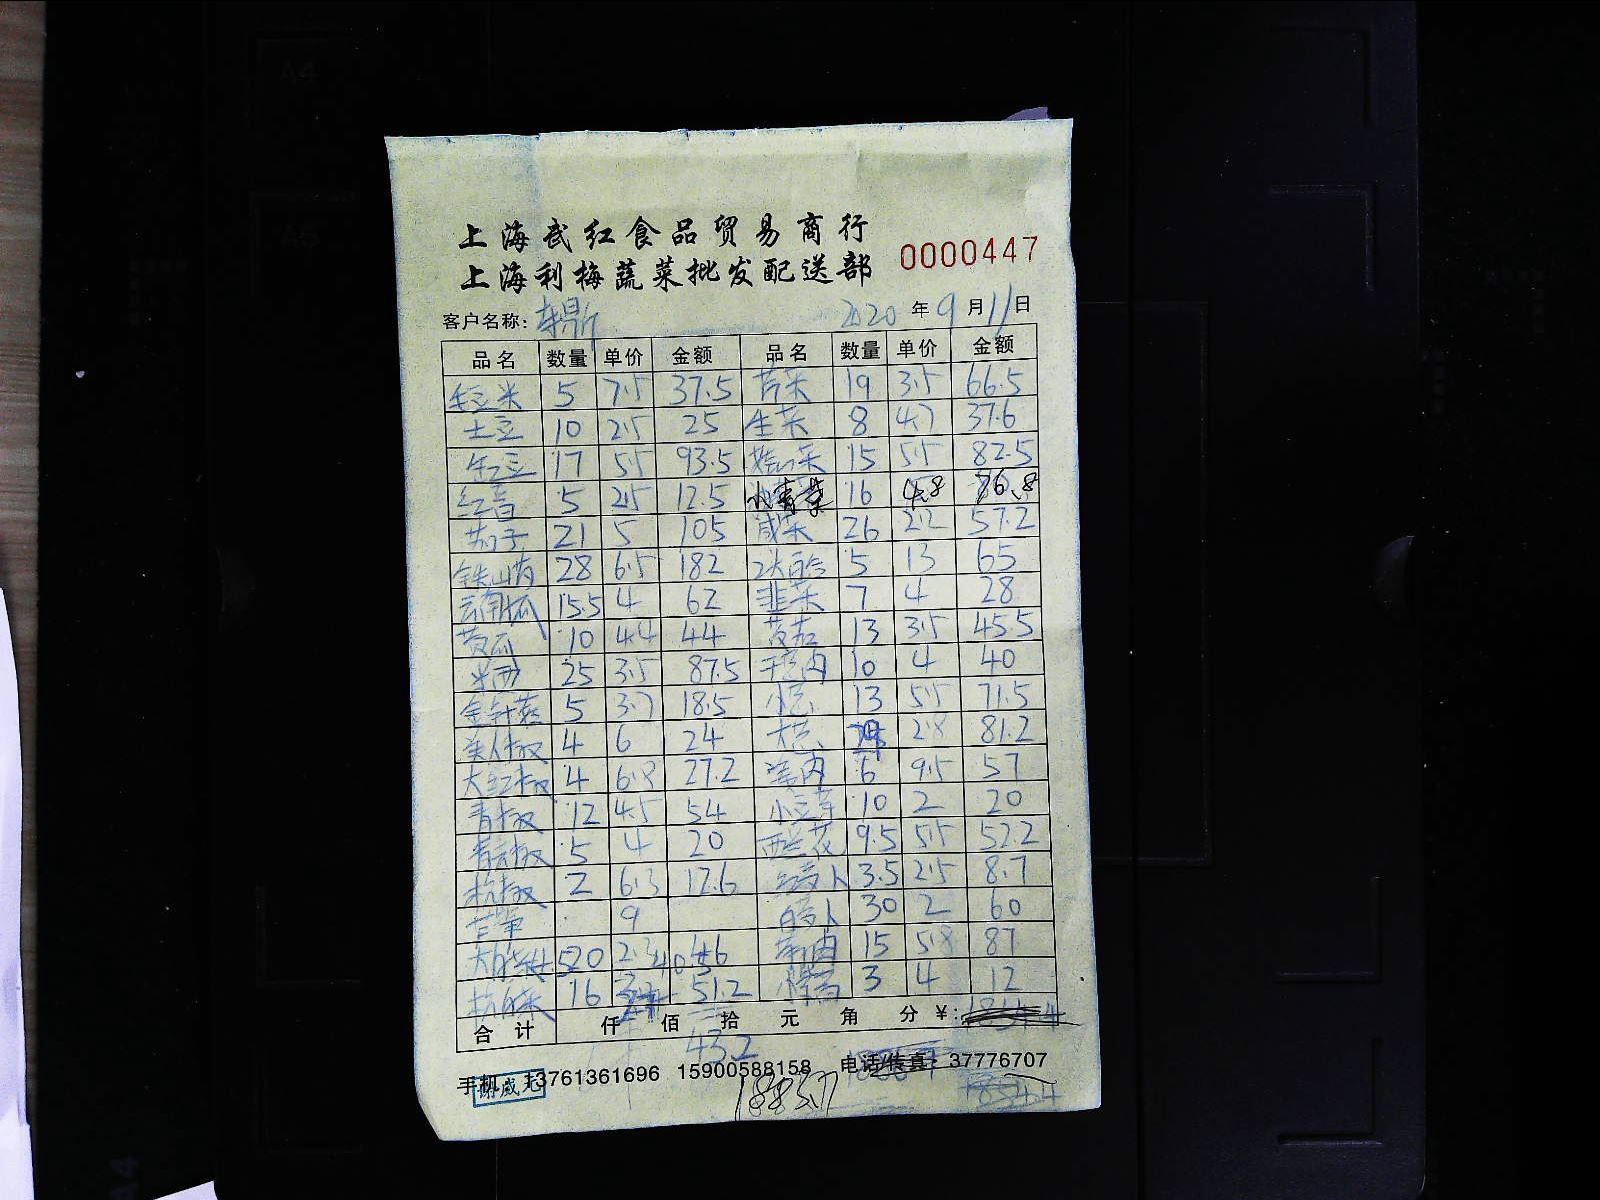 上海武红食品贸易商行
上海利梅蔬菜批发配送部
0000447
客户名称: 2020 年 9 月 11 日
品名 数量 单价 金额 品名 数量 单价 金额
毛豆米 5 7.5 37.5 芹菜 19 3.5 66.5
土豆 10 2.5 25 生菜 8 4.7 37.6
17 5.5 93.5 15 5.5 82.5
5 2.5 12.5 小青菜 16 4.8 76.8
茄子 21 5 105 咸菜 26 2.2 57.2
铁山药 28 6.5 182 5 13 65
云南瓜 15.5 4 62 韭菜 7 4 28
黄瓜 10 4.4 44 13 3.5 45.5
25 3.5 87.5 10 4 40
金针菇 5 3.7 18.5 小葱 13 5.5 71.5
美人椒 4 6 24 大葱 2.8 81.2
大红椒 4 6.8 27.2 6 9.5 57
青椒 12 4.5 54 小豆芽 10 2 20
5 4 20 西兰花 9.5 5.5 52.2
杭椒 2 6.3 12.6 3.5 2.5 8.7
9 30 2 60
20 2.3 46 15 5.8 87
16 51.2 3 4 12
合计 仟 佰 拾 元 角 分 ¥:
43.2
手机:13761361696 15900588158 电话/传真:37776707